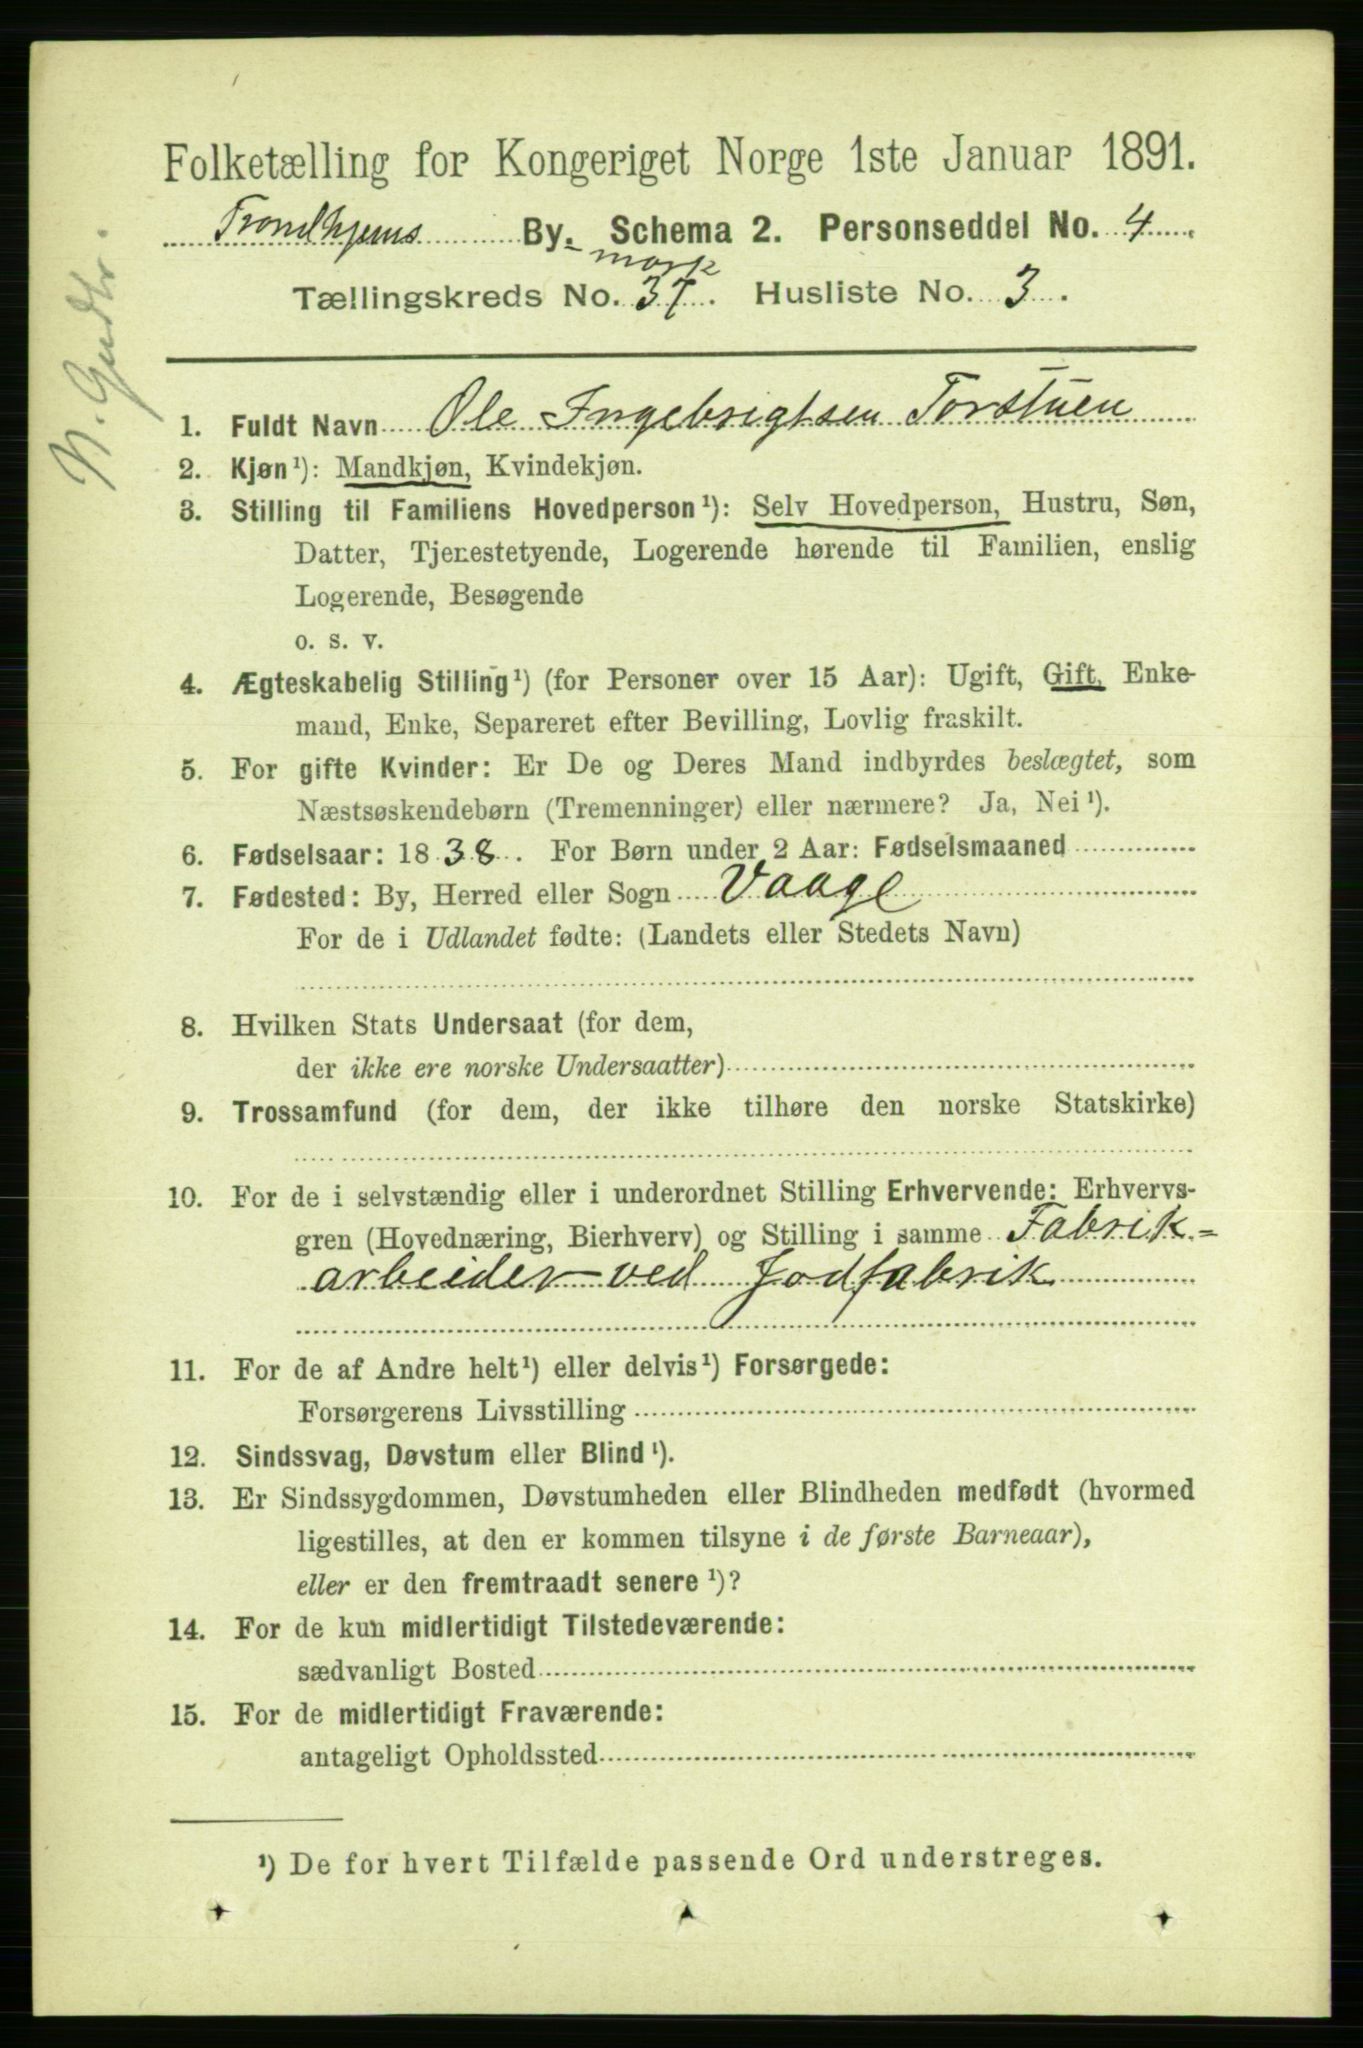 Folketælling for Kongeriget Norge 1ste Januar 1891.
Trondhjems By. Schema 2. Personseddel No. 4.
mark
Tællingskreds No. 37. Husliste No. 3.
N. Gudbr.
1. Fuldt Navn Ole Ingebrigtsen Torstuen
2. Kjøn¹): Mandkjøn, Kvindekjøn.
3. Stilling til Familiens Hovedperson¹): Selv Hovedperson, Hustru, Søn,
Datter, Tjenestetyende, Logerende hørende til Familien, enslig
Logerende, Besøgende
o. s. v.
4. Ægteskabelig Stilling¹) (for Personer over 15 Aar): Ugift, Gift, Enke-
mand, Enke, Separeret efter Bevilling, Lovlig fraskilt.
5. For gifte Kvinder: Er De og Deres Mand indbyrdes beslægtet, som
Næstsøskendebørn (Tremenninger) eller nærmere? Ja, Nei¹).
6. Fødselsaar: 1838. For Børn under 2 Aar: Fødselsmaaned
7. Fødested: By, Herred eller Sogn Vaage
For de i Udlandet fødte: (Landets eller Stedets Navn)
8. Hvilken Stats Undersaat (for dem,
der ikke ere norske Undersaatter)
9. Trossamfund (for dem, der ikke tilhøre den norske Statskirke)
10. For de i selvstændig eller i underordnet Stilling Erhvervende: Erhvervs-
gren (Hovednæring, Bierhverv) og Stilling i samme Fabrik-
arbeider ved Jodfabrik
11. For de af Andre helt¹) eller delvis¹) Forsørgede:
Forsørgerens Livsstilling
12. Sindssvag, Døvstum eller Blind¹).
13. Er Sindssygdommen, Døvstumheden eller Blindheden medfødt (hvormed
ligestilles, at den er kommen tilsyne i de første Barneaar),
eller er den fremtraadt senere¹)?
14. For de kun midlertidigt Tilstedeværende:
sædvanligt Bosted
15. For de midlertidigt Fraværende:
antageligt Opholdssted
¹) De for hvert Tilfælde passende Ord understreges.